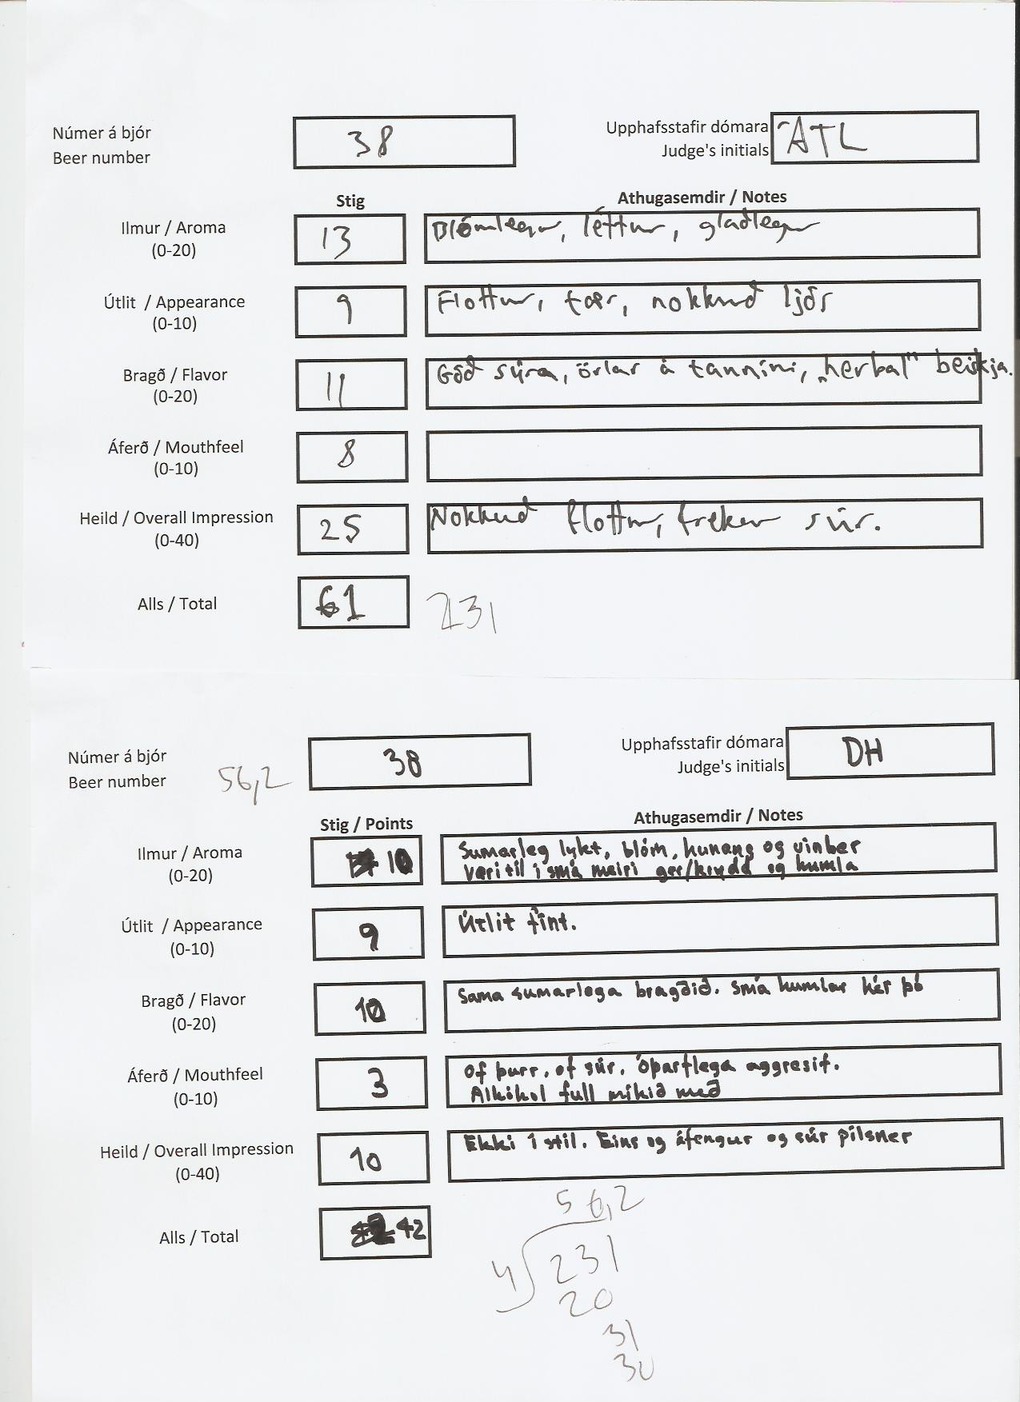 Númer á bjór
Beer number
38
Upphafsstafir dómara
Judge's initials
ATL
Stig
Athugasemdir / Notes
Ilmur / Aroma
(0-20)
13
Blómlegur, léttur, glaðlegur
Útlit / Appearance
(0-10)
9
Flottur, tær, nokkuð ljós
Bragð / Flavor
(0-20)
11
Góð sýra, örlar á tannini, „herbal" beiskja.
Áferð / Mouthfeel
(0-10)
8
Heild / Overall Impression
(0-40)
25
Nokkuð flottur, frekar súr.
Alls / Total
61
231
Númer á bjór
Beer number
56,2
38
Upphafsstafir dómara
Judge's initials
DH
Stig / Points
Athugasemdir / Notes
Ilmur / Aroma
(0-20)
10
Sumarleg lykt, blóm, hunang og vinber
Væri til í smá meiri ger/krydd og humla
Útlit / Appearance
(0-10)
9
Útlit fínt.
Bragð / Flavor
(0-20)
10
Sama sumarlega bragðið. Smá humlar hér þó
Áferð / Mouthfeel
(0-10)
3
Of þurr, of súr. Óþarflega aggresíf.
Alkóhol full mikið með
Heild / Overall Impression
(0-40)
10
Ekki í stíl. Eins og áfengur og súr pilsner
Alls / Total
42
56,2
4 231
20
31
30